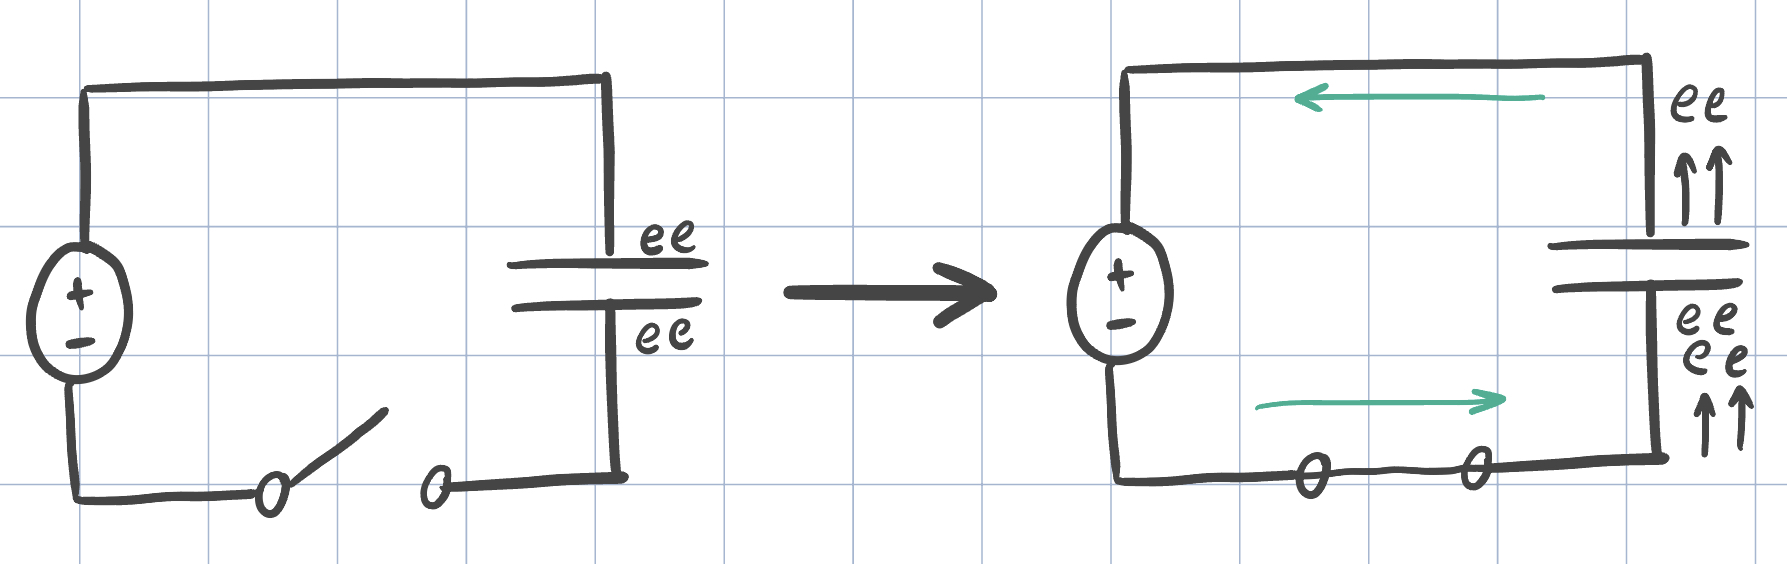 ee
+
-
ee
ee
+
-
ee
ee